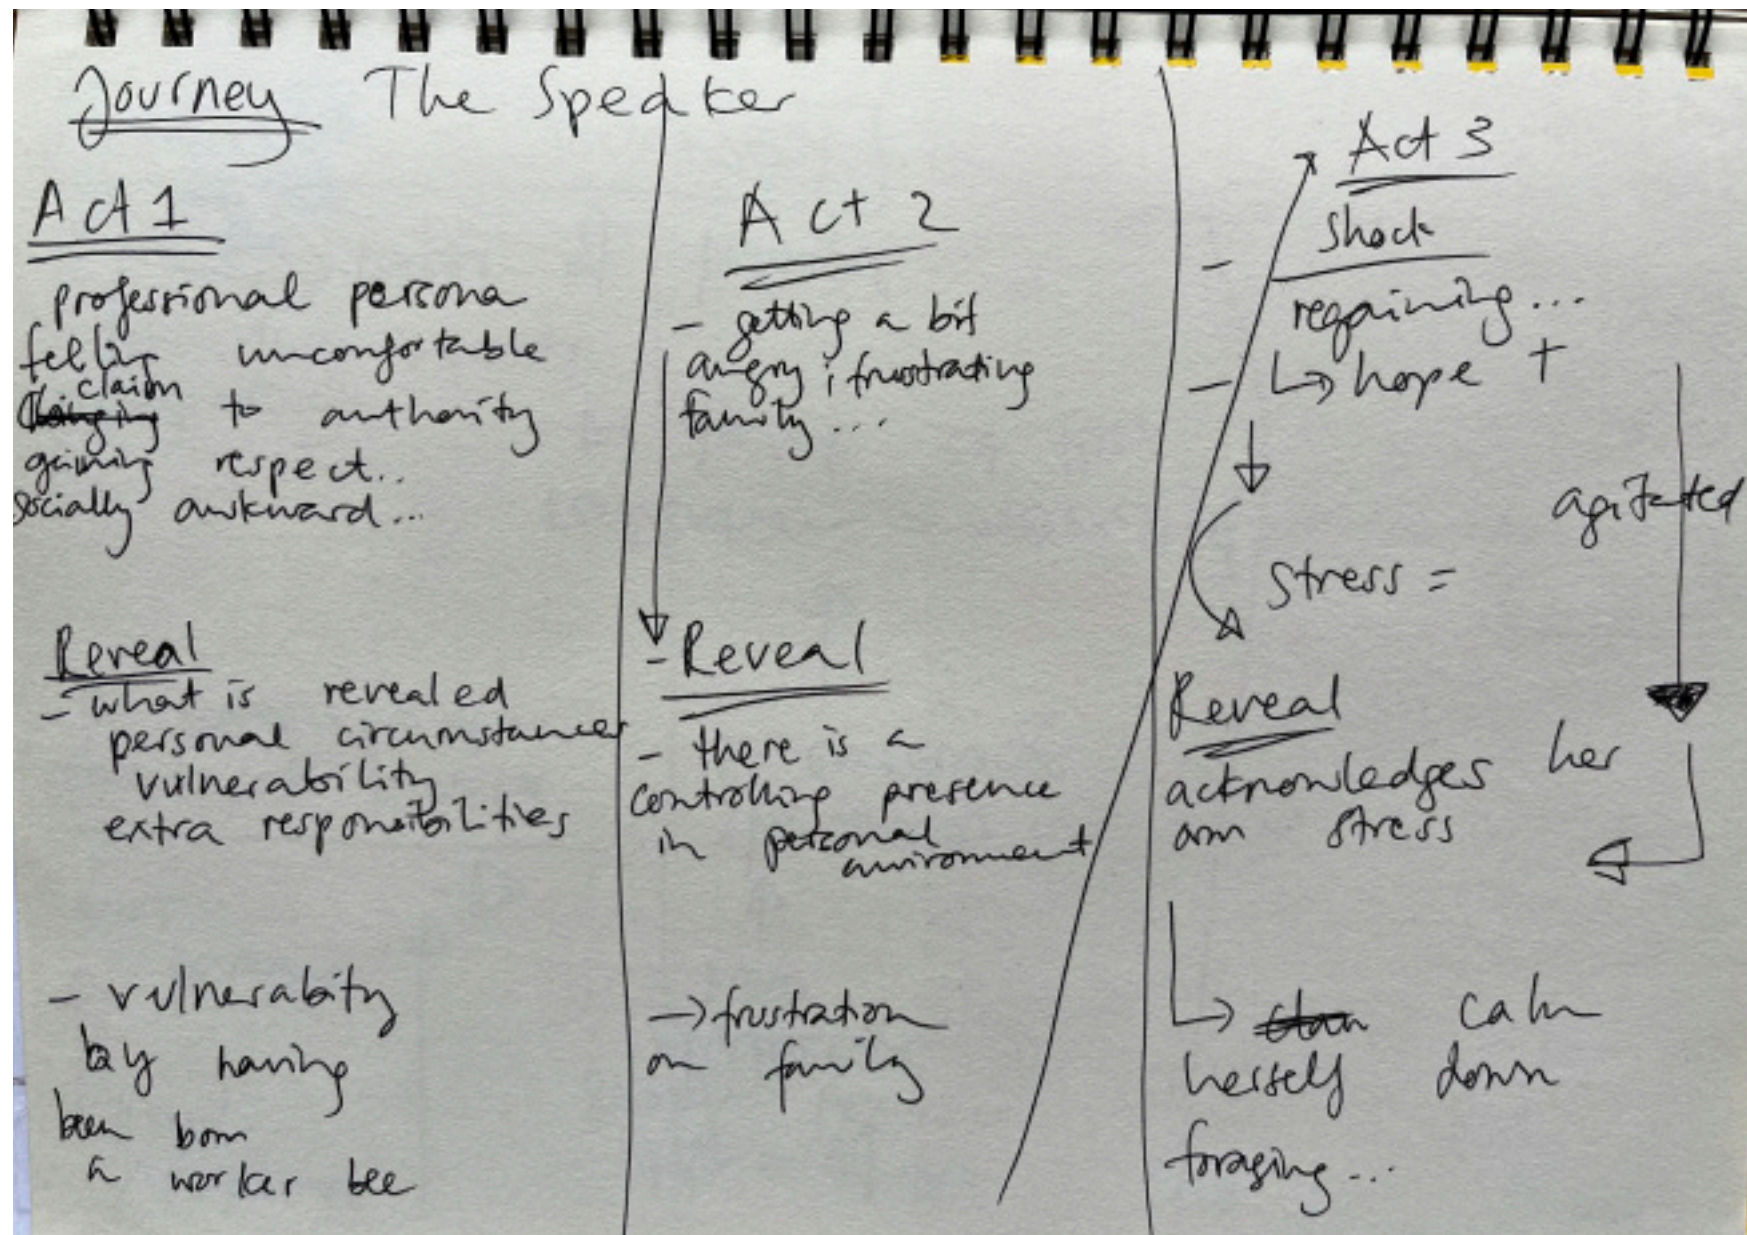 Journey The Speaker
Act 1
professional persona
felling uncomfortable
claim
to authority
gaining respect..
socially awkward...
Reveal
- what is revealed
personal circumstances
vulnerability
extra responsibilities
- vulnerability
by having
been born
a worker bee
Act 2
- getting a bit
angry ; frustrating
family...
- Reveal
- there is a
controlling presence
in personal
environment
→ frustration
on family
Act 3
- shock
regaining...
- ↳ hope +
agitated
stress =
Reveal
acknowledges her
own stress
↳ calm
herself down
foraging...